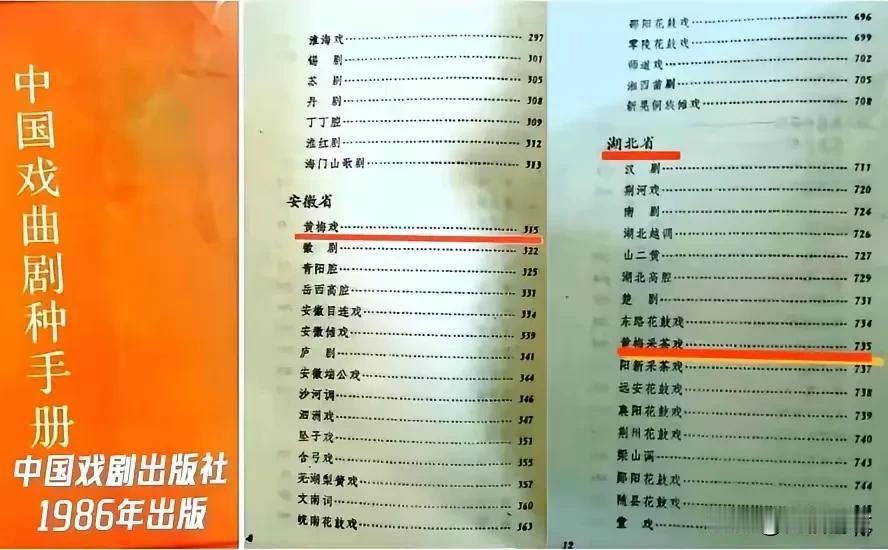 中国戏曲剧种手册
中国戏剧出版社
1986年出版
淮海戏 297
锡剧 301
苏剧 305
丹剧 308
丁丁腔 309
淮红剧 312
海门山歌剧 313
安徽省
黄梅戏 315
徽剧 322
青阳腔 325
岳西高腔 331
安徽目连戏 334
安徽傩戏 339
庐剧 341
安徽端公戏 344
沙河调 346
泗洲戏 347
坠子戏 351
含弓戏 355
芜湖梨簧戏 357
文南词 360
皖南花鼓戏 363
邵阳花鼓戏 696
零陵花鼓戏 699
师道戏 702
湘西苗剧 705
新晃侗族傩戏 708
湖北省
汉剧 711
荆河戏 720
南剧 724
湖北越调 726
山二黄 727
湖北高腔 729
楚剧 731
东路花鼓戏 734
黄梅采茶戏 735
阳新采茶戏 737
远安花鼓戏 738
襄阳花鼓戏 739
荆州花鼓戏 740
梁山调 743
郧阳花鼓戏 744
随县花鼓戏
堂戏
12